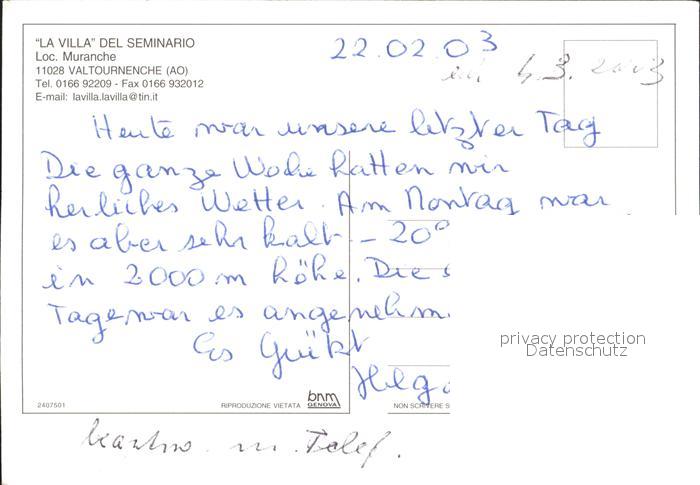 "LA VILLA" DEL SEMINARIO
Loc. Muranche
11028 VALTOURNENCHE (AO)
Tel. 0166 92209 - Fax 0166 932012
E-mail: lavilla.lavilla@tin.it
22.02.03
4.3. 2003
Heute war unsere letzter Tag
Die ganze Woche hatten wir
herliches Wetter. Am Montag war
es aber sehr kalt - 20°
in 2000 m höhe. Die
Tage war es angenehm.
Es Grüßt
Helg
privacy protection
Datenschutz
2407501
RIPRODUZIONE VIETATA
bnm
GENOVA
NON SCRIVERE S
m. Telef.